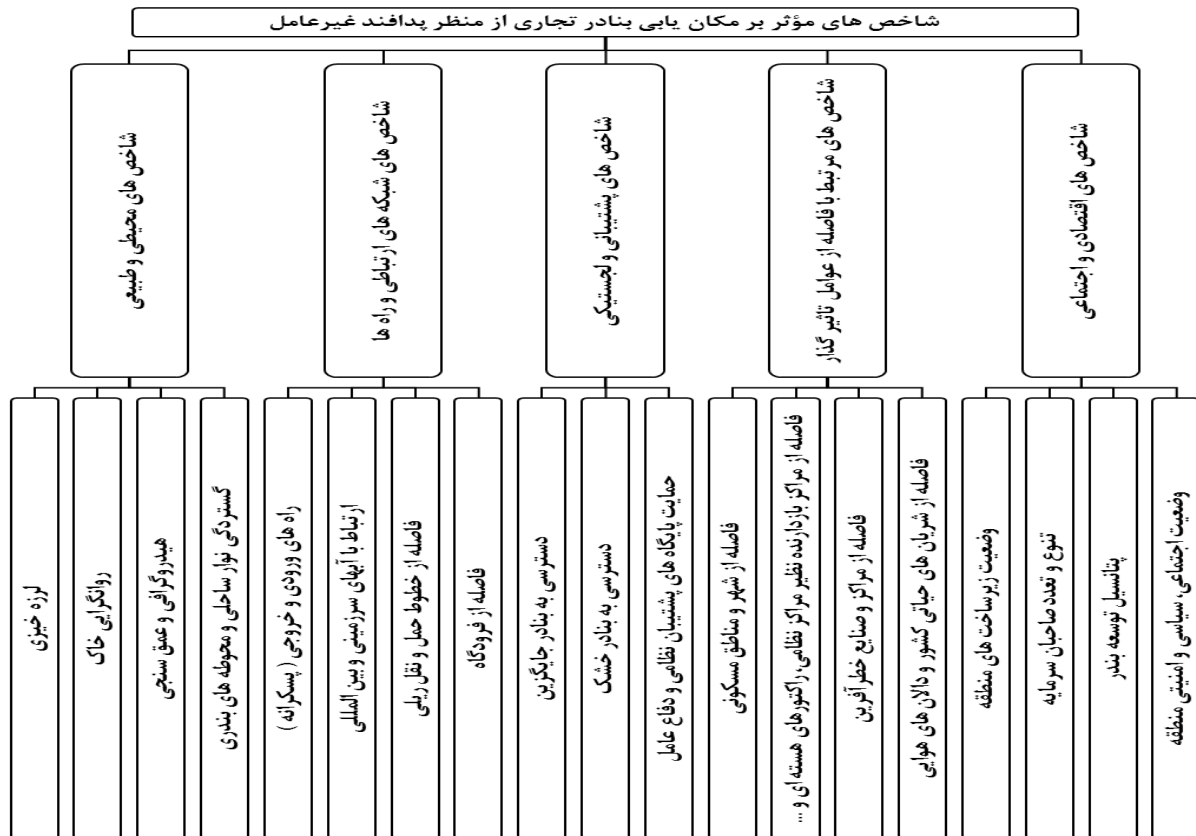 شاخص های مؤثر بر مکان یابی بنادر تجاری از منظر پدافند غیرعامل
شاخص های اقتصادی و اجتماعی
شاخص های مرتبط با فاصله از عوامل تاثیر گذار
شاخص های پشتیبانی و لجستیکی
شاخص های شبکه های ارتباطی و راه ها
شاخص های محیطی و طبیعی
وضعیت اجتماعی، سیاسی و امنیتی منطقه
پتانسیل توسعه بندر
تنوع و تعدد صاحبان سرمایه
وضعیت زیرساخت های منطقه
فاصله از شریان های حیاتی کشور و دالان های هوایی
فاصله از مراکز و صنایع خطرآفرین
فاصله از مراکز بازدارنده نظیر مراکز نظامی، راکتورهای هسته ای و ...
فاصله از شهر و مناطق مسکونی
حمایت پایگاه های پشتیبان نظامی و دفاع عامل
دسترسی به بنادر خشک
دسترسی به بنادر جایگزین
فاصله از فرودگاه
فاصله از خطوط حمل و نقل ریلی
ارتباط با آبهای سرزمینی و بین المللی
راه های ورودی و خروجی ( پسکرانه )
گستردگی نوار ساحلی و محوطه های بندری
هیدروگرافی و عمق سنجی
روانگرایی خاک
لرزه خیزی